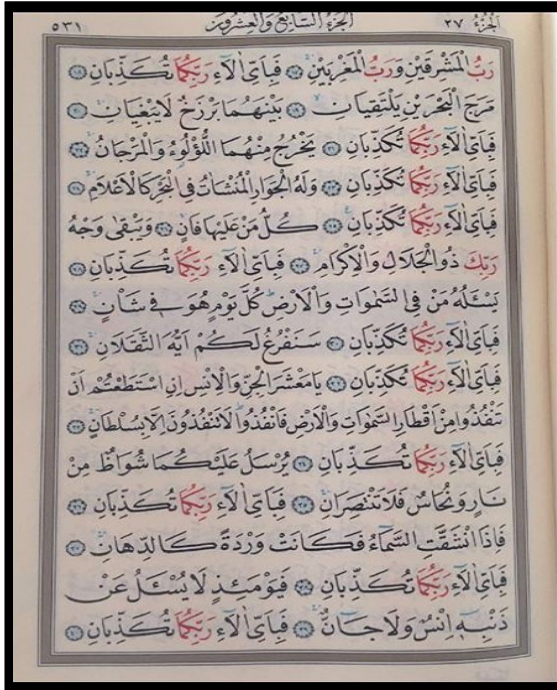 الجزء ٢٧ الجزء السابع والعشرون ٥٣١
رَبُّ الْمَشْرِقَيْنِ وَرَبُّ الْمَغْرِبَيْنِ ١٧ فَبِاَيِّ اٰلَٓاءِ رَبِّكُمَا تُكَذِّبَانِ ١٨
مَرَجَ الْبَحْرَيْنِ يَلْتَقِيَانِ ١٩ بَيْنَهُمَا بَرْزَخٌ لَا يَبْغِيَانِ ٢٠
فَبِاَيِّ اٰلَٓاءِ رَبِّكُمَا تُكَذِّبَانِ ٢١ يَخْرُجُ مِنْهُمَا اللُّؤْلُؤُ وَالْمَرْجَانُ ٢٢
فَبِاَيِّ اٰلَٓاءِ رَبِّكُمَا تُكَذِّبَانِ ٢٣ وَلَهُ الْجَوَارِ الْمُنْشَاٰتُ فِي الْبَحْرِ كَالْاَعْلَامِ ٢٤
فَبِاَيِّ اٰلَٓاءِ رَبِّكُمَا تُكَذِّبَانِ ٢٥ كُلُّ مَنْ عَلَيْهَا فَانٍ ٢٦ وَيَبْقٰى وَجْهُ
رَبِّكَ ذُو الْجَلَالِ وَالْاِكْرَامِ ٢٧ فَبِاَيِّ اٰلَٓاءِ رَبِّكُمَا تُكَذِّبَانِ ٢٨
يَسْـَٔلُهُ مَنْ فِي السَّمٰوَاتِ وَالْاَرْضِ كُلَّ يَوْمٍ هُوَ فِي شَأْنٍ ٢٩
فَبِاَيِّ اٰلَٓاءِ رَبِّكُمَا تُكَذِّبَانِ ٣٠ سَنَفْرُغُ لَكُمْ اَيُّهَ الثَّقَلَانِ ٣١
فَبِاَيِّ اٰلَٓاءِ رَبِّكُمَا تُكَذِّبَانِ ٣٢ يَا مَعْشَرَ الْجِنِّ وَالْاِنْسِ اِنِ اسْتَطَعْتُمْ اَنْ
تَنْفُذُوا مِنْ اَقْطَارِ السَّمٰوَاتِ وَالْاَرْضِ فَانْفُذُوا لَا تَنْفُذُونَ اِلَّا بِسُلْطَانٍ ٣٣
فَبِاَيِّ اٰلَٓاءِ رَبِّكُمَا تُكَذِّبَانِ ٣٤ يُرْسَلُ عَلَيْكُمَا شُوَاظٌ مِنْ
نَارٍ وَنُحَاسٌ فَلَا تَنْتَصِرَانِ ٣٥ فَبِاَيِّ اٰلَٓاءِ رَبِّكُمَا تُكَذِّبَانِ ٣٦
فَاِذَا انْشَقَّتِ السَّمَٓاءُ فَكَانَتْ وَرْدَةً كَالدِّهَانِ ٣٧
فَبِاَيِّ اٰلَٓاءِ رَبِّكُمَا تُكَذِّبَانِ ٣٨ فَيَوْمَئِذٍ لَا يُسْـَٔلُ عَنْ
ذَنْبِهٖ اِنْسٌ وَلَا جَانٌّ ٣٩ فَبِاَيِّ اٰلَٓاءِ رَبِّكُمَا تُكَذِّبَانِ ٤٠